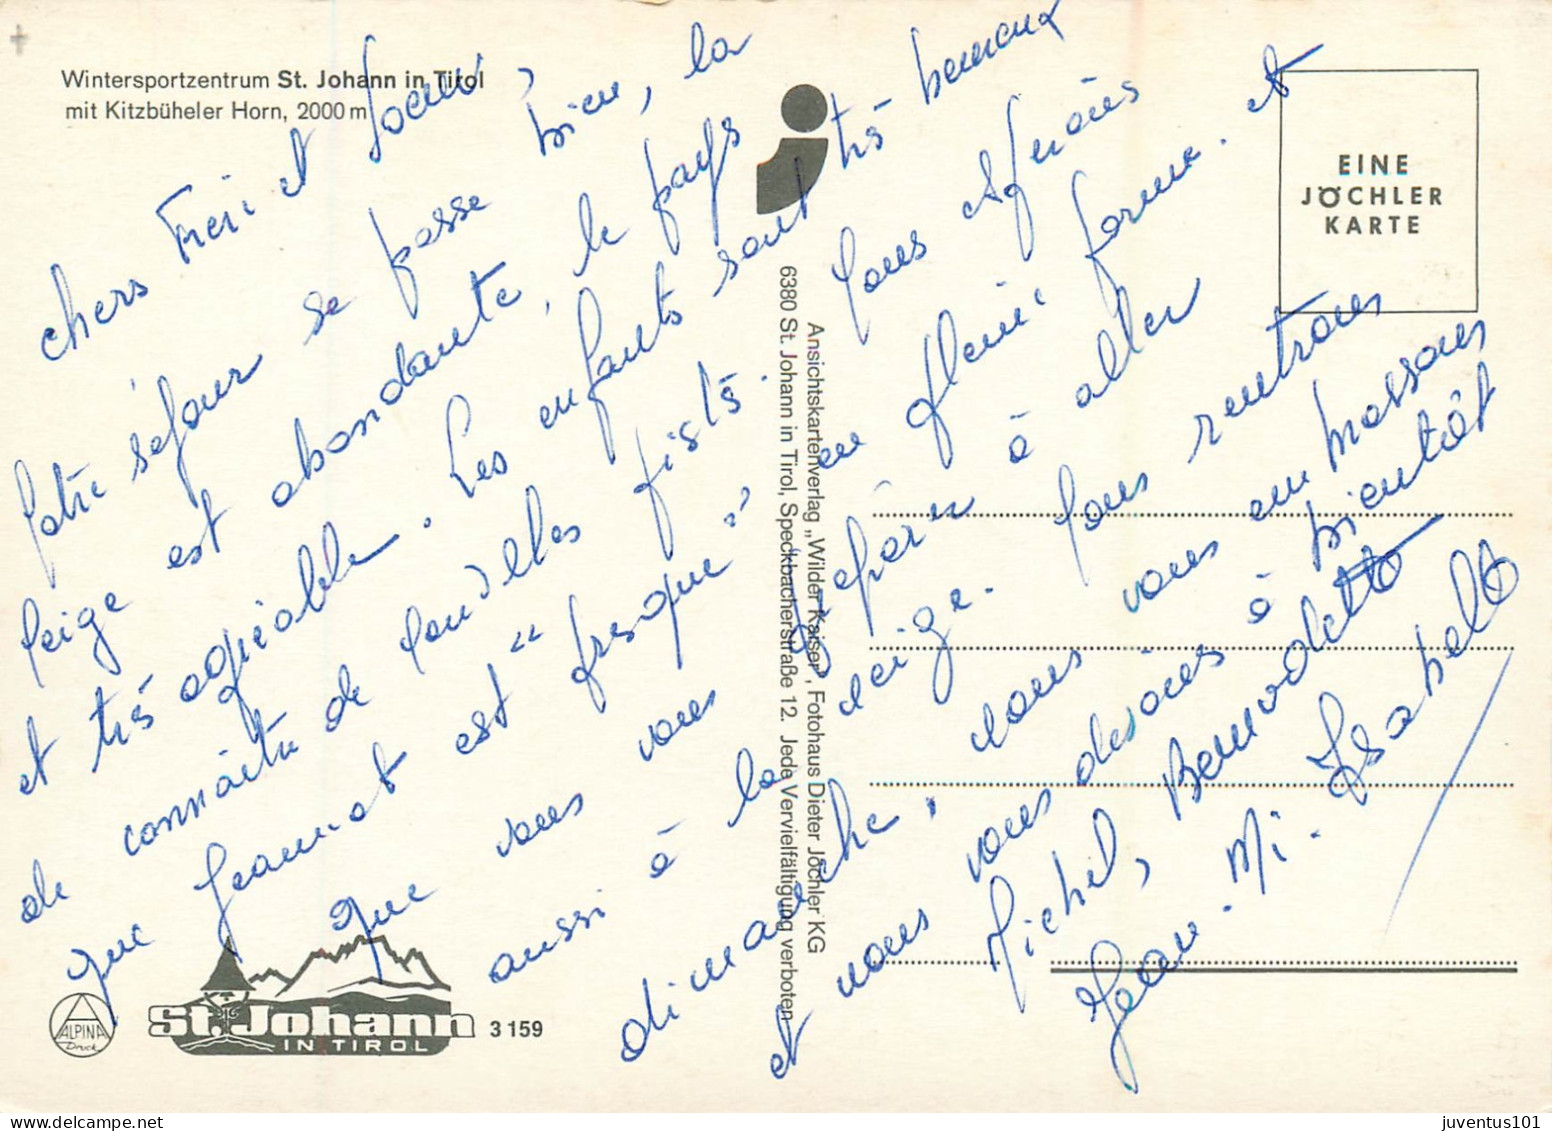 Wintersportzentrum St. Johann in Tirol
mit Kitzbüheler Horn, 2000 m
EINE
JÖCHLER
KARTE
chers et
Notre séjour se passe bien, la
neige est abondante, le pays
et très agréable. Les enfants sont très heureux
de connaître de nouvelles pistes. Nous espérons
que Jeannot est "presque" en pleine forme. et
que vous vous préparez à aller
aussi à la neige. Nous rentrons
dimanche, nous vous embrassons
et nous vous disons à bientôt
Michel, Bernadette
Jean-Mi. Isabelle
Ansichtskartenverlag „Wilder Kaiser", Fotohaus Dieter Jöchler KG
6380 St. Johann in Tirol, Speckbacherstraße 12. Jede Vervielfältigung verboten
ALPINA
Druck
St. Johann
IN TIROL
3 159
juventus101